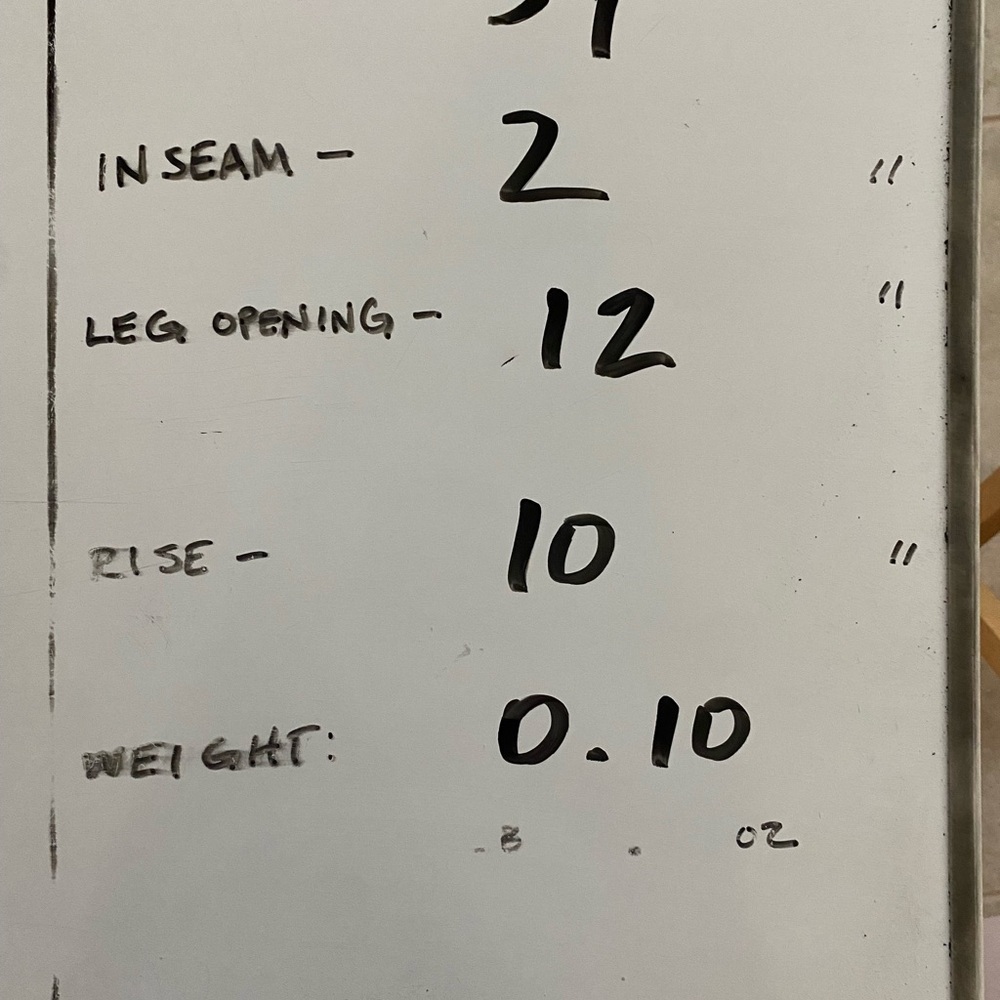 INSEAM - 2 "
LEG OPENING - 12 "
RISE - 10 "
WEIGHT: 0.10
. OZ